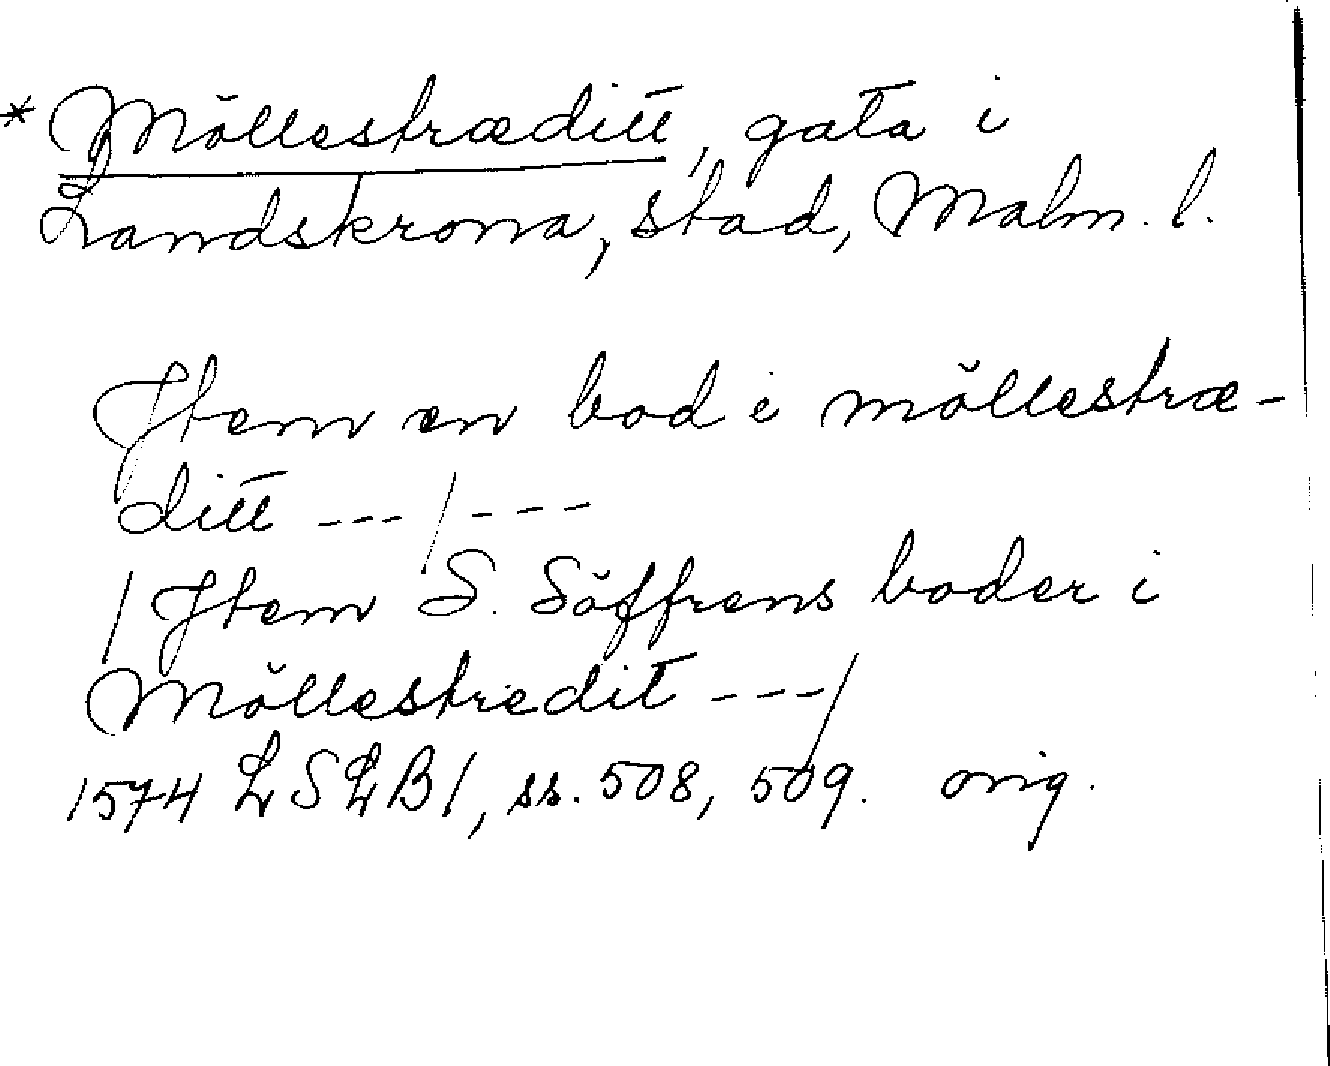 * Möllestræditt, gata i
Landskrona, stad, Malm. l.
Item en bod i möllestræ-
ditt --- / ---
/ Item S. Söffrens boder i
Möllestredit --- /
1574 LSLB 1, ss. 508, 509. orig.